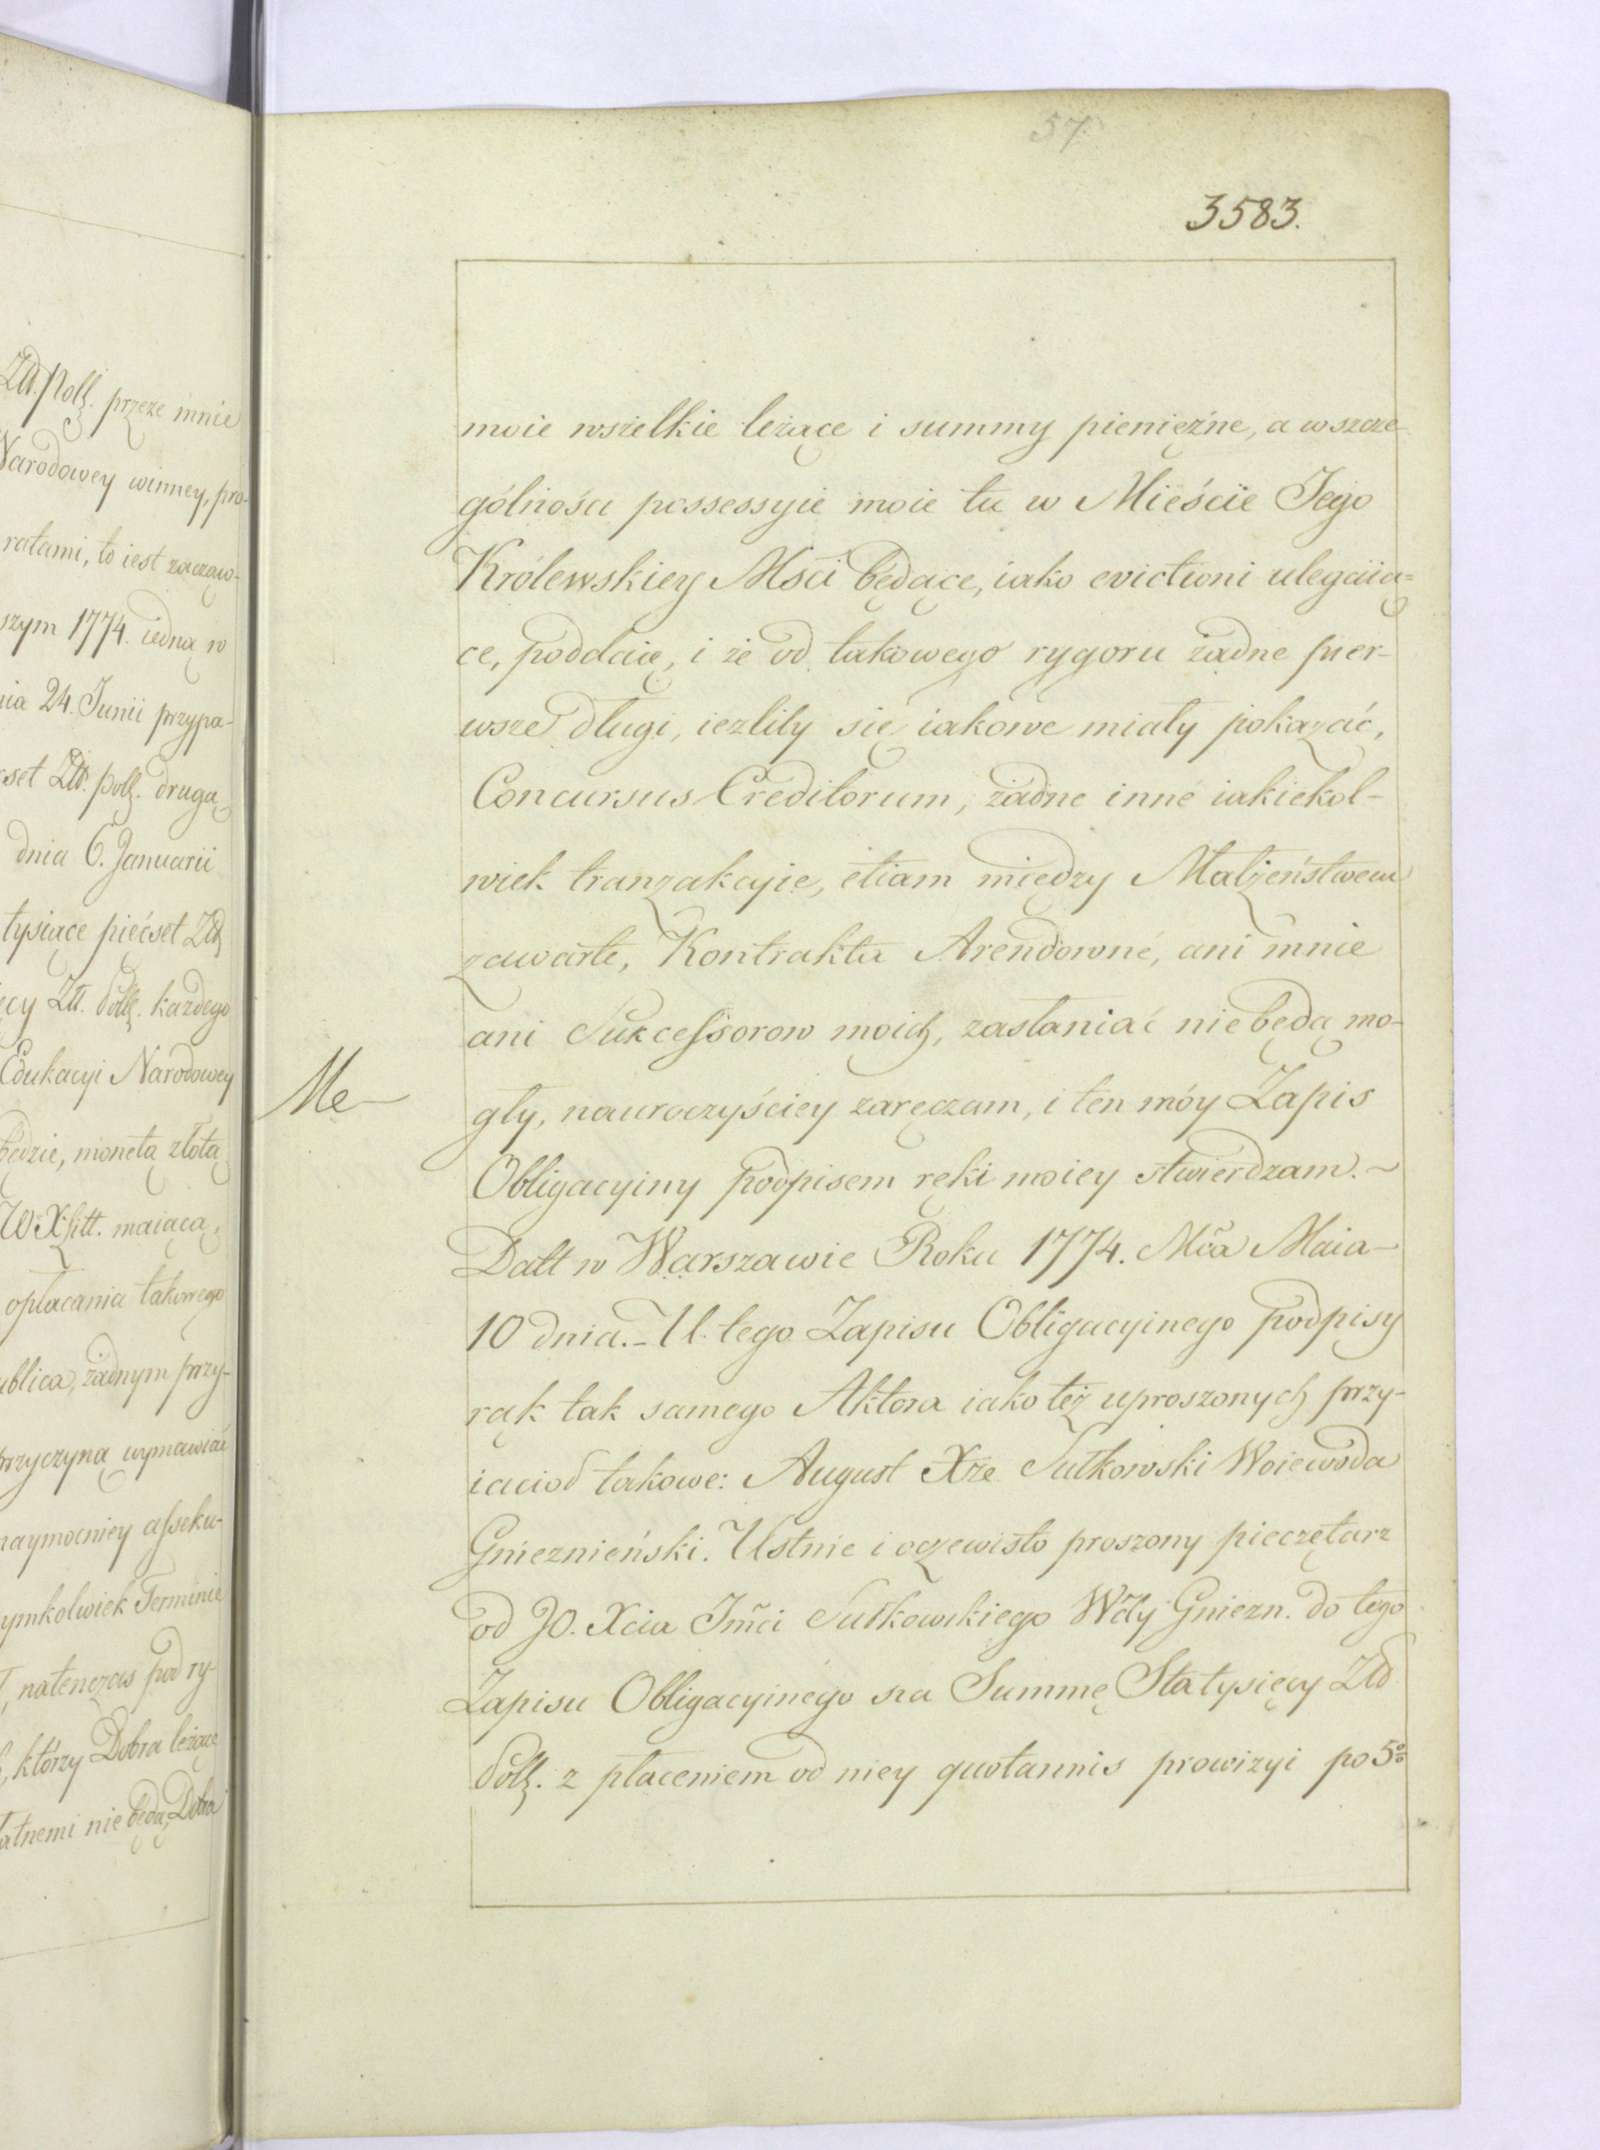 Złt. Polſ. przeze mnie
Narodowey winney, pro-
ratami, to iest zacząw-
szym 1774. iedną w
nia 24. Junii przypa-
set Złt. polſ. drugą
dnia 6. Januarii
tysiące pięćset Złt
ęcy Złt. Polſ. każdego
Edukacyi Narodowey
będzie, monetą złotą
maiącą,
opłacania takowego
ublica, żadnym przy-
przyczyną wymawiać
naymocniey aſseku-
ymkolwiek Terminie
natenczas pod ry-
którzy Dobra leżące
atnemi nie będą, Dobra
57
3583.
moie wszelkie leżące i summy pieniężne, a w szcze-
gólności possessyie moie tu w Mieście Jego
Królewskiey Mści będące, iako evictioni ulegaią=
ce, poddaię, i że od takowego rygoru żadne pier-
wsze długi, ieżliby się iakowe miały pokazać,
Concursus Creditorum, żadne inné iakiekol-
wiek tranzakcyie, etiam między Małżeństwem
zawarte, Kontrakta Arendowné, ani mnie
ani Sukceſsorow moich, zasłaniać nie będą mo-
gły, nauroczyściey zaręczam, i ten móy Zapis
Me
Obligacyiny podpisem ręki moiey stwierdzam.~
Datt w Warszawie Roku 1774. Mc̃a Maia-
10 dnia.- U tego Zapisu Obligacyinego podpisy
rąk tak samego Aktora iako też uproszonych przy-
iaciod takowe: August Xże Sułkowski Woiewoda
Gnieznieński. Ustnie i oczewisto proszony pieczętarz
od JO. Xcia Jm̃ci Sułkowskiego Wd̃y Gniezn. do tego
Zapisu Obligacyinégo na Summę Sta tysięcy Złt
Polſ. z płaceniem od niey quotannis prowizyi po 5%